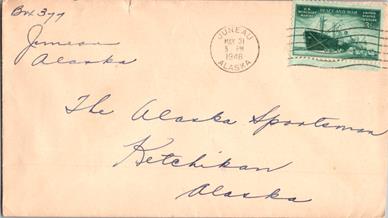 Box 377
Juneau
Alaska
JUNEAU
MAY 31
5 PM
1946
ALASKA
PEACE AND WAR
UNITED STATES POSTAGE
3¢
The Alaska Sportsman
Ketchikan
Alaska